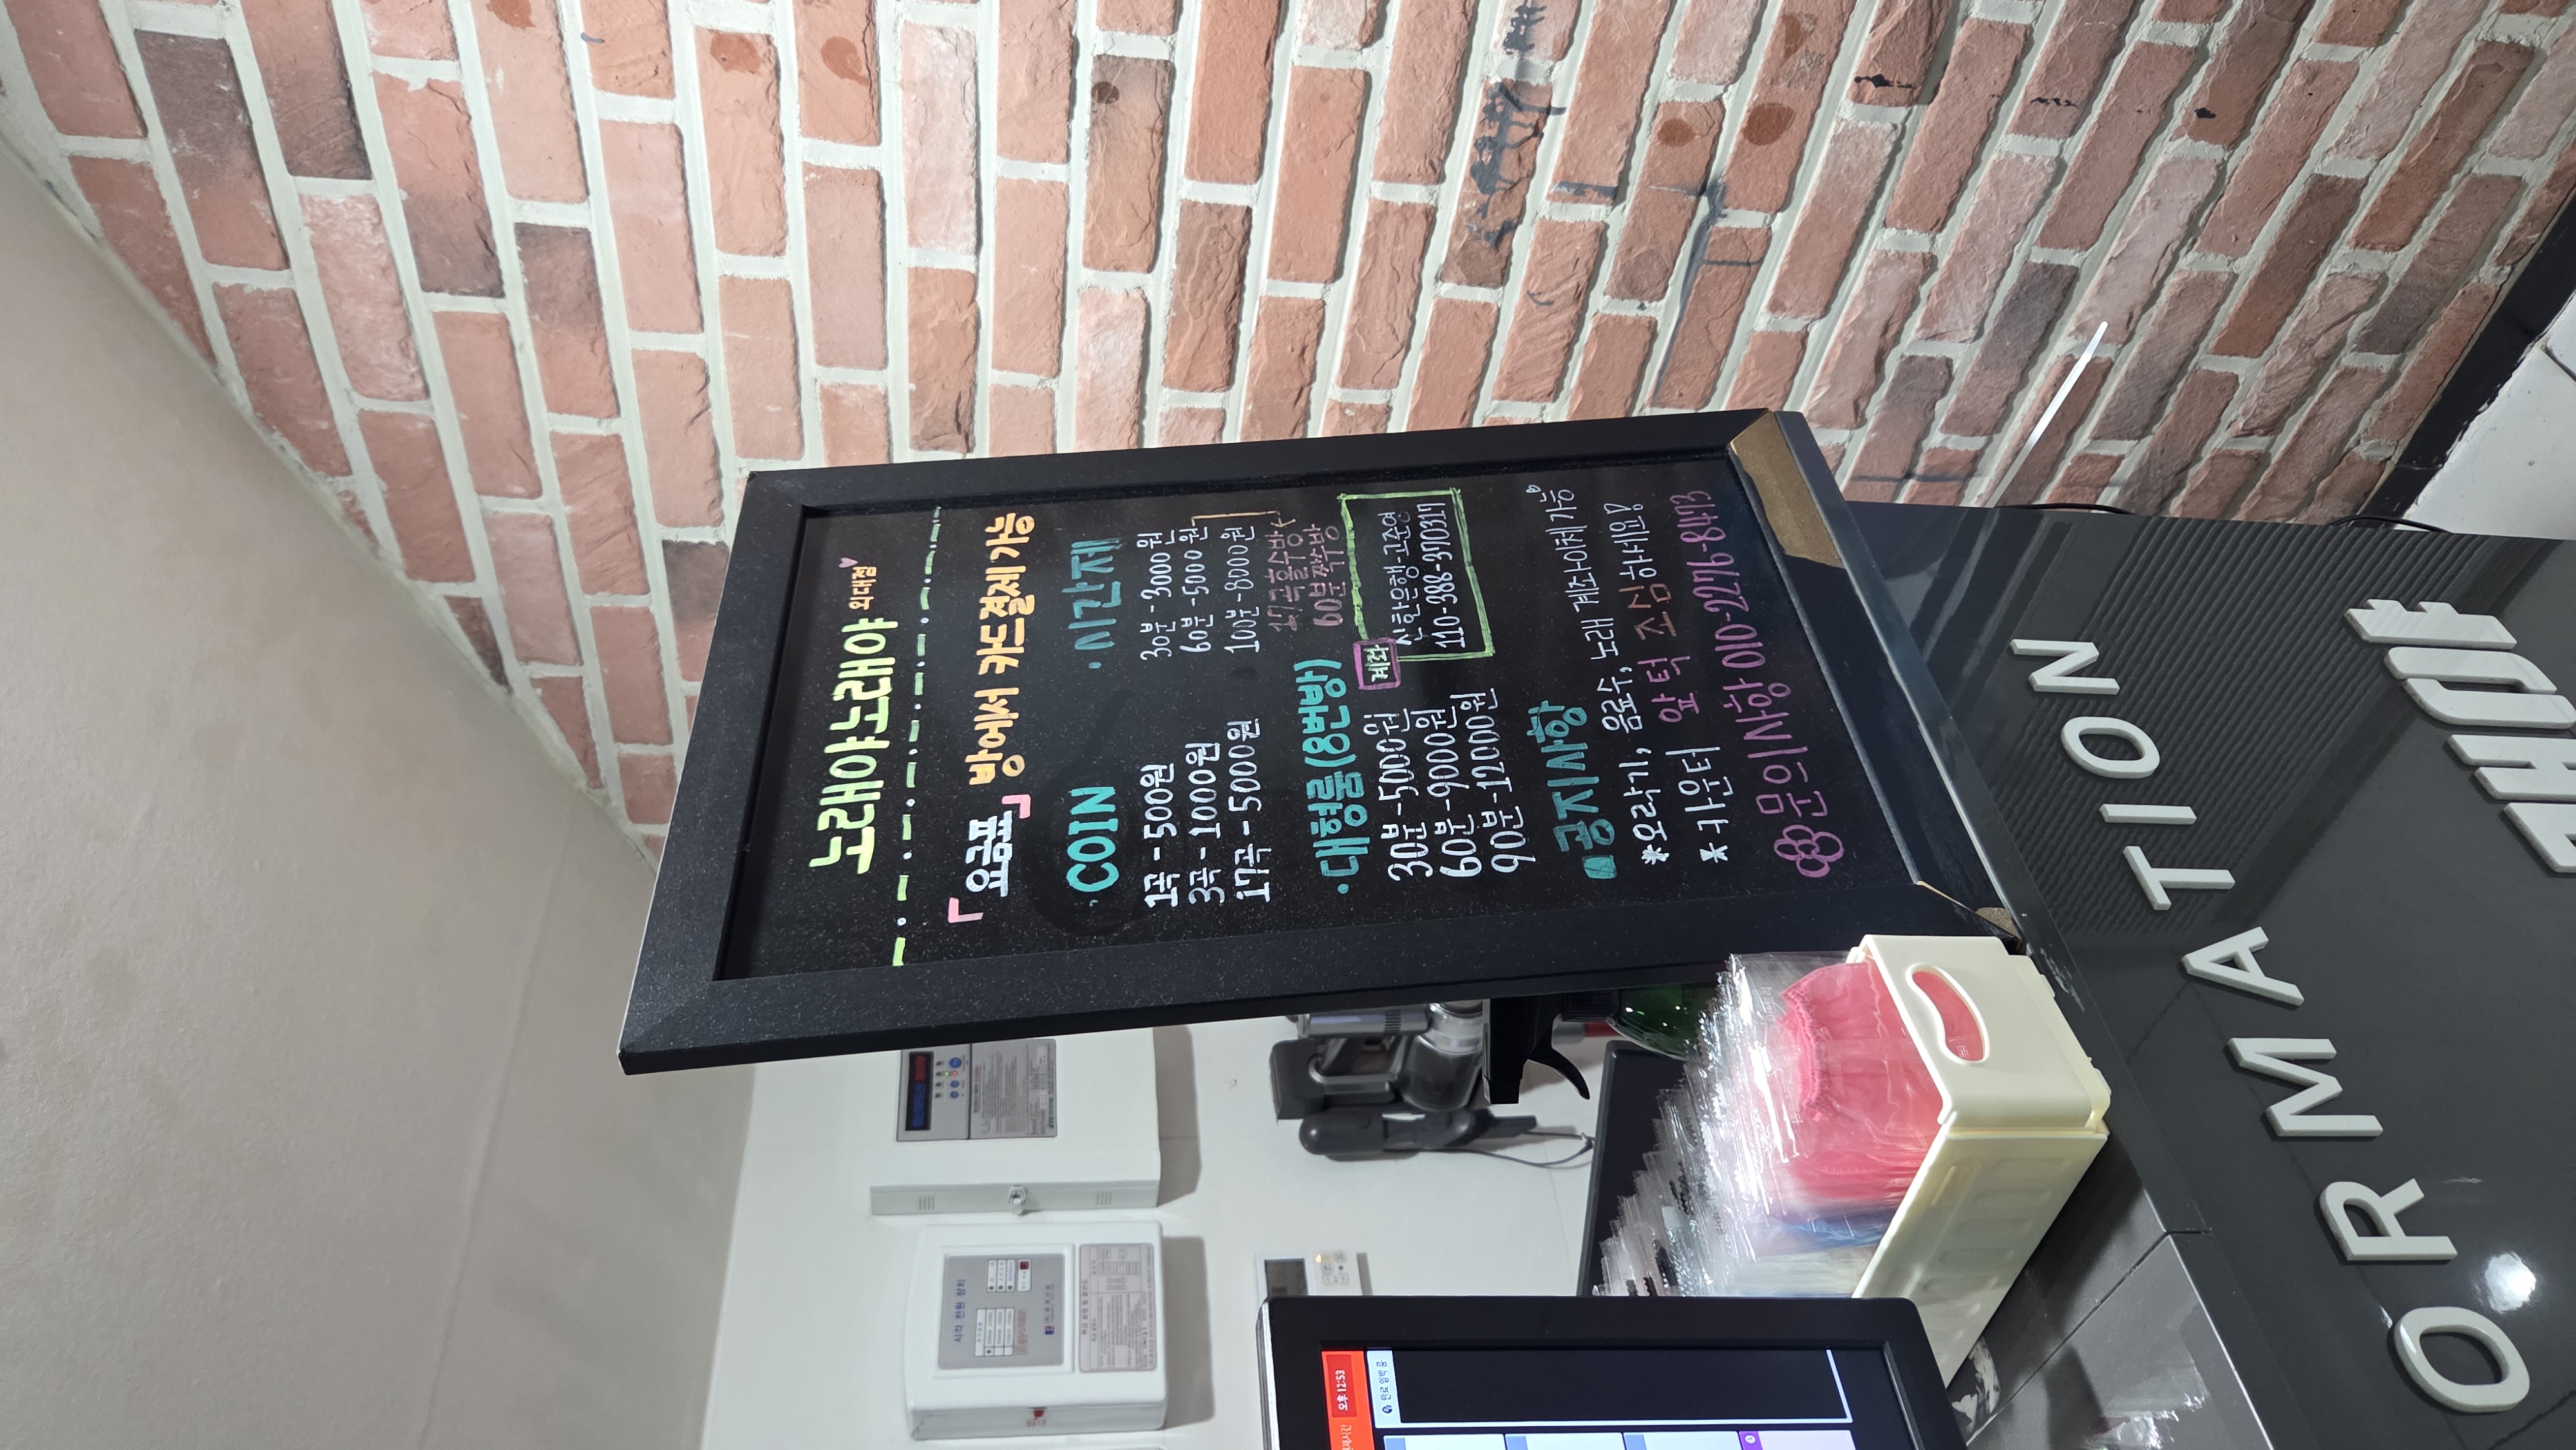 노래야노래야 외대점
「요금표」 방에서 카드결제 가능
·COIN
1곡-500원
3곡-1000원
17곡-5000원
·시간제
30분-3000원
60분-5000원
100분-8000원
17곡홀수방
60분짝수방
·대형룸(8번방)
30분-5000원
60분-9000원
90분-12000원
계좌
신한은행-고준영
110-388-370317
공지사항
*오락기, 음료수, 노래 계좌이체가능
*카운터 앞 턱 조심하세요!
문의사항 010-2276-8473
ORMATION
오후 12:53